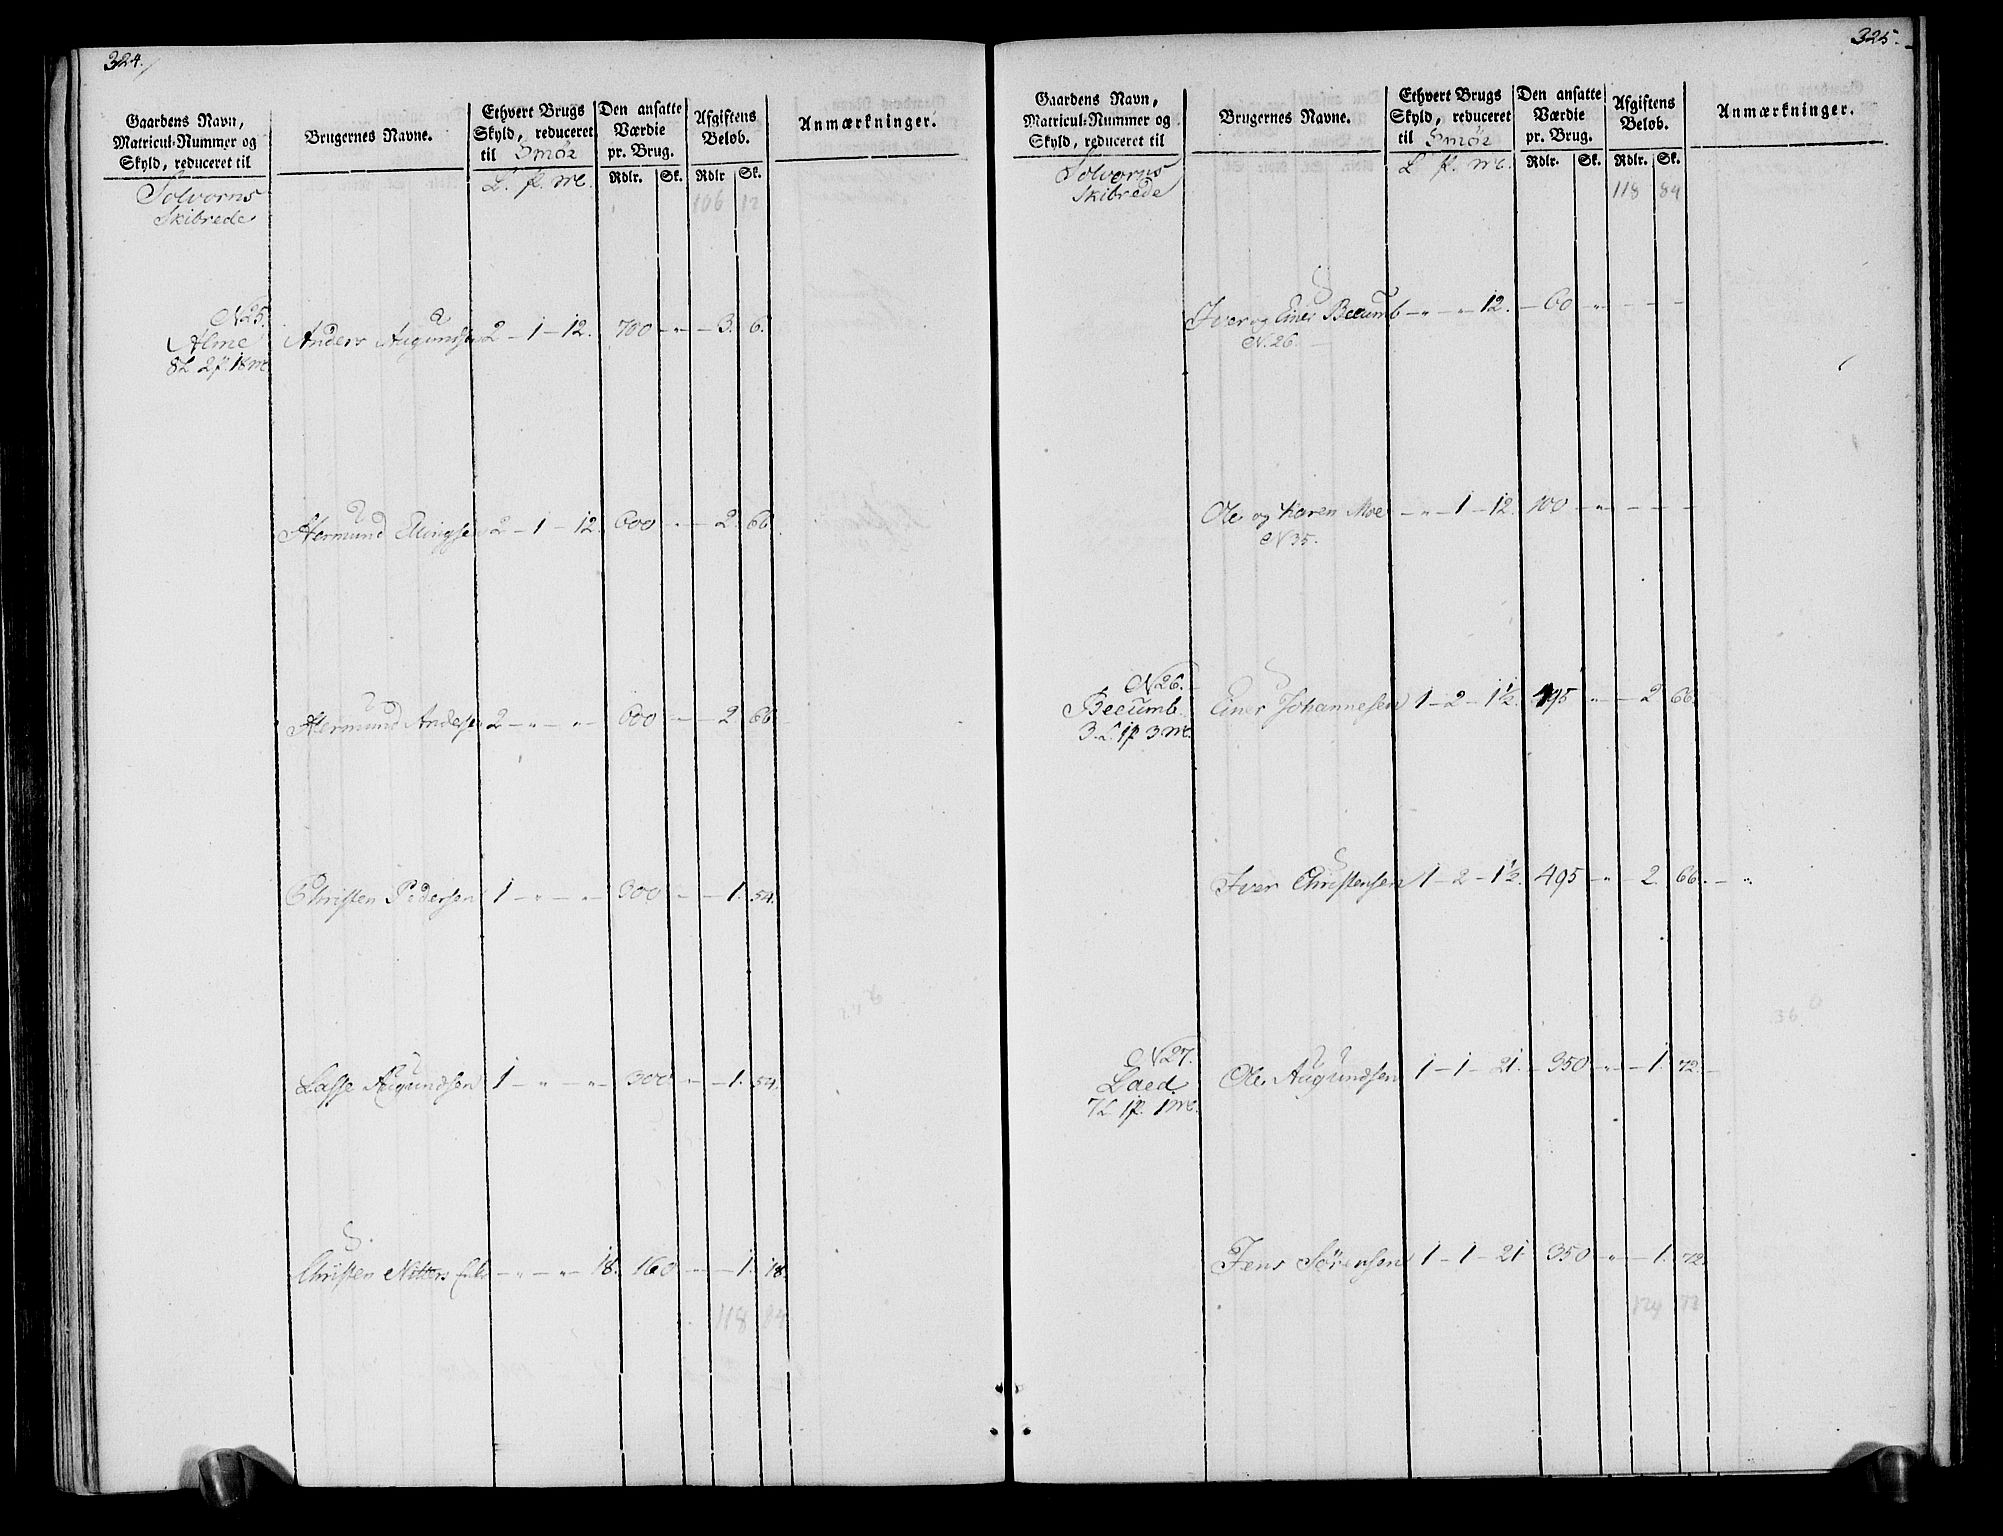 324.
Gaardens Navn,
Matricul-Nummer og
Skyld, reduceret til
Brugernes Navne.
Ethvert Brugs
Skyld, reduceret
til Smør
Den ansatte
Værdie
pr. Brug.
Afgiftens
Beløb.
Anmærkninger.
L. p. mk.
Rdlr. Sk. Rdlr Sk.
Solvorns
Skibrede
106 12
N 25.
Alme
8L 2p. 18 mk.
Anders Augundsen 2 - 1 - 12. 700 - " - 3. 6.
Hermund Ellingsen 2 - 1 - 12. 600 - " - 2. 66.
Hermund Andersen 2 - " - " - 600 - " - 2. 66.
Christen Pedersen 1 - " - " - 300 - " - 1. 54.
Lasse Augundsen 1 - " - " - 300 - " - 1. 54.
Christen Nitters Enke - " - " - 18. 160 - " - 1. 18.
118 84
325.
Gaardens Navn,
Matricul-Nummer og
Skyld, reduceret til
Brugernes Navne.
Ethvert Brugs
Skyld, reduceret
til Smør
Den ansatte
Værdie
pr. Brug.
Afgiftens
Belob.
Anmærkninger.
L p. mk.
Rdlr. Sk. Rdlr. Sk.
Solvorns
Skibrede
118 84
Iver og Einer Beeumb - " - " 12. - 60 - " - - -
N. 26.
Ole og Karen Moe - " - 1 - 12. 100 - " - - -
N 35.
N 26.
Beeumb.
3. L. 1p 3 mk.
Einer Johannesen 1 - 2 - 1½. 495 - " - 2. 66.
Iver Christensen 1 - 2 - 1½. 495 - " - 2. 66. - "
N 27.
Laed
7L. 1p. 1 mk.
Ole Augundsen 1 - 1 - 21. - 350 - " - 1. 72. -
Jens Sørensen 1 - 1 - 21 - 350 - " - 1. 72.